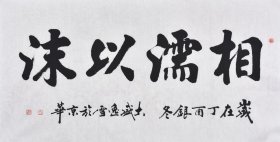 相濡以沫
歲在丁酉銀冬 逸雪於京華